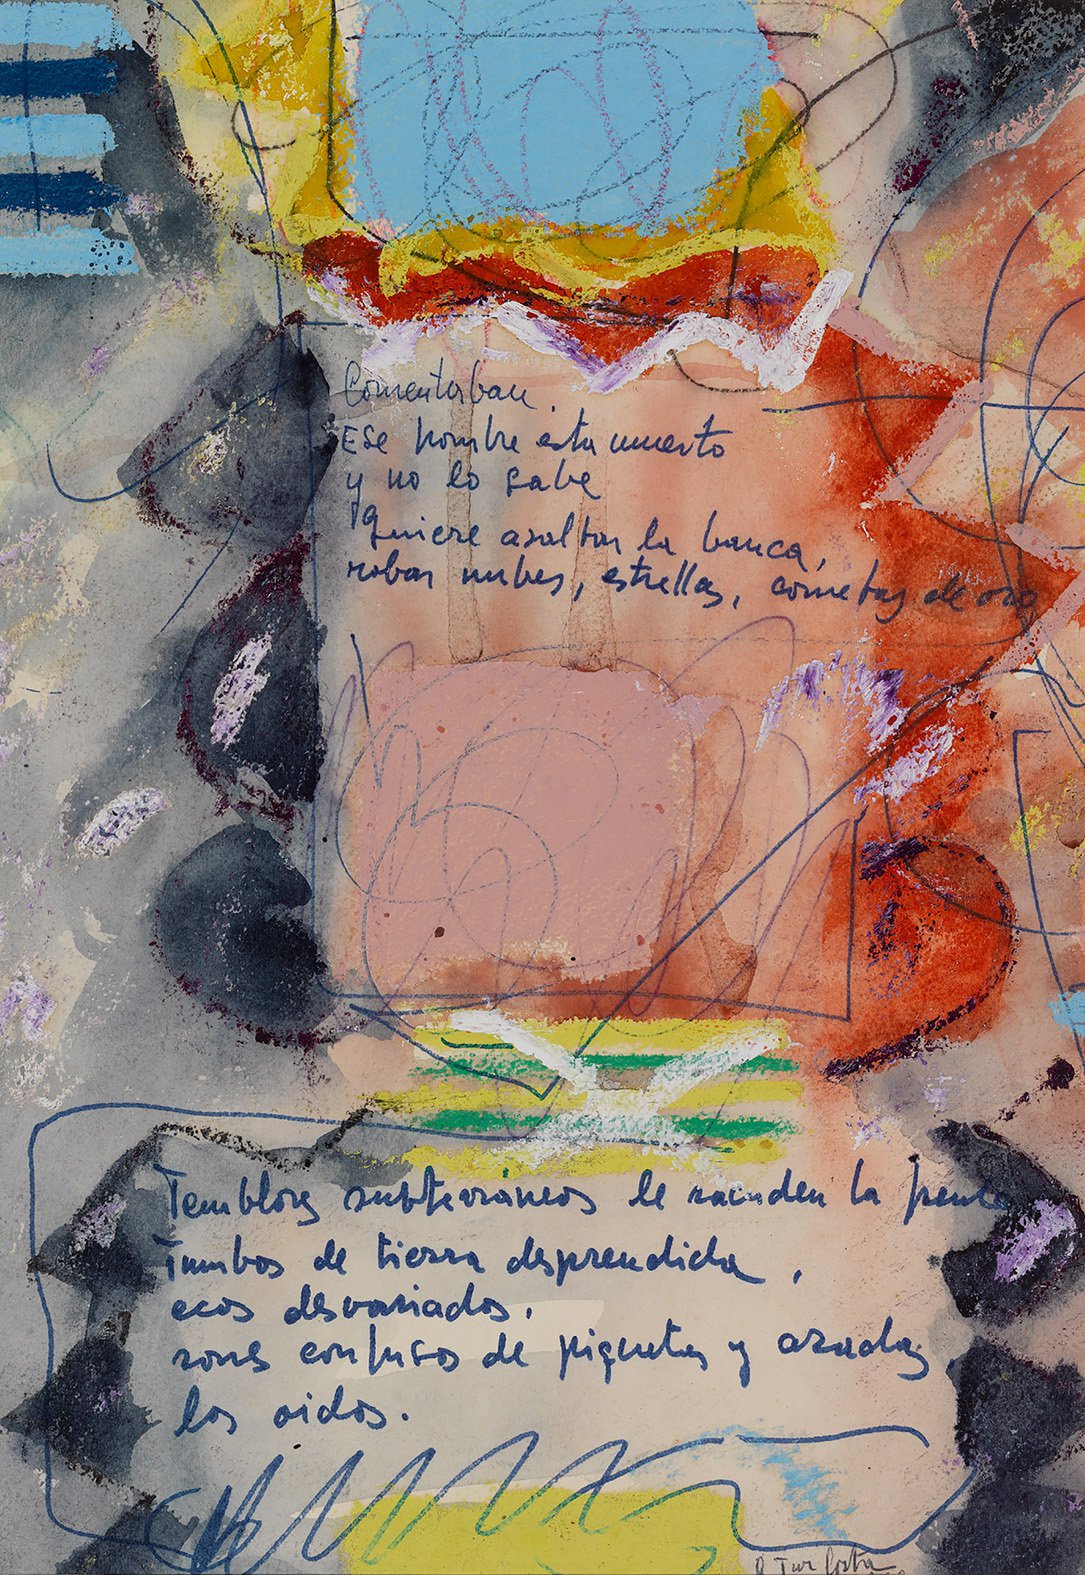 Comentaban.
Ese hombre esta muerto
y no lo sabe
quiere asaltar la banca,
robar nubes, estrellas, cometas de oro
Temblores subterráneos le sacuden la frente
Tumbos de tierra desprendida,
ecos desvariados,
sones confusos de piquetas y azadas,
los oidos.
R. Tur Costa